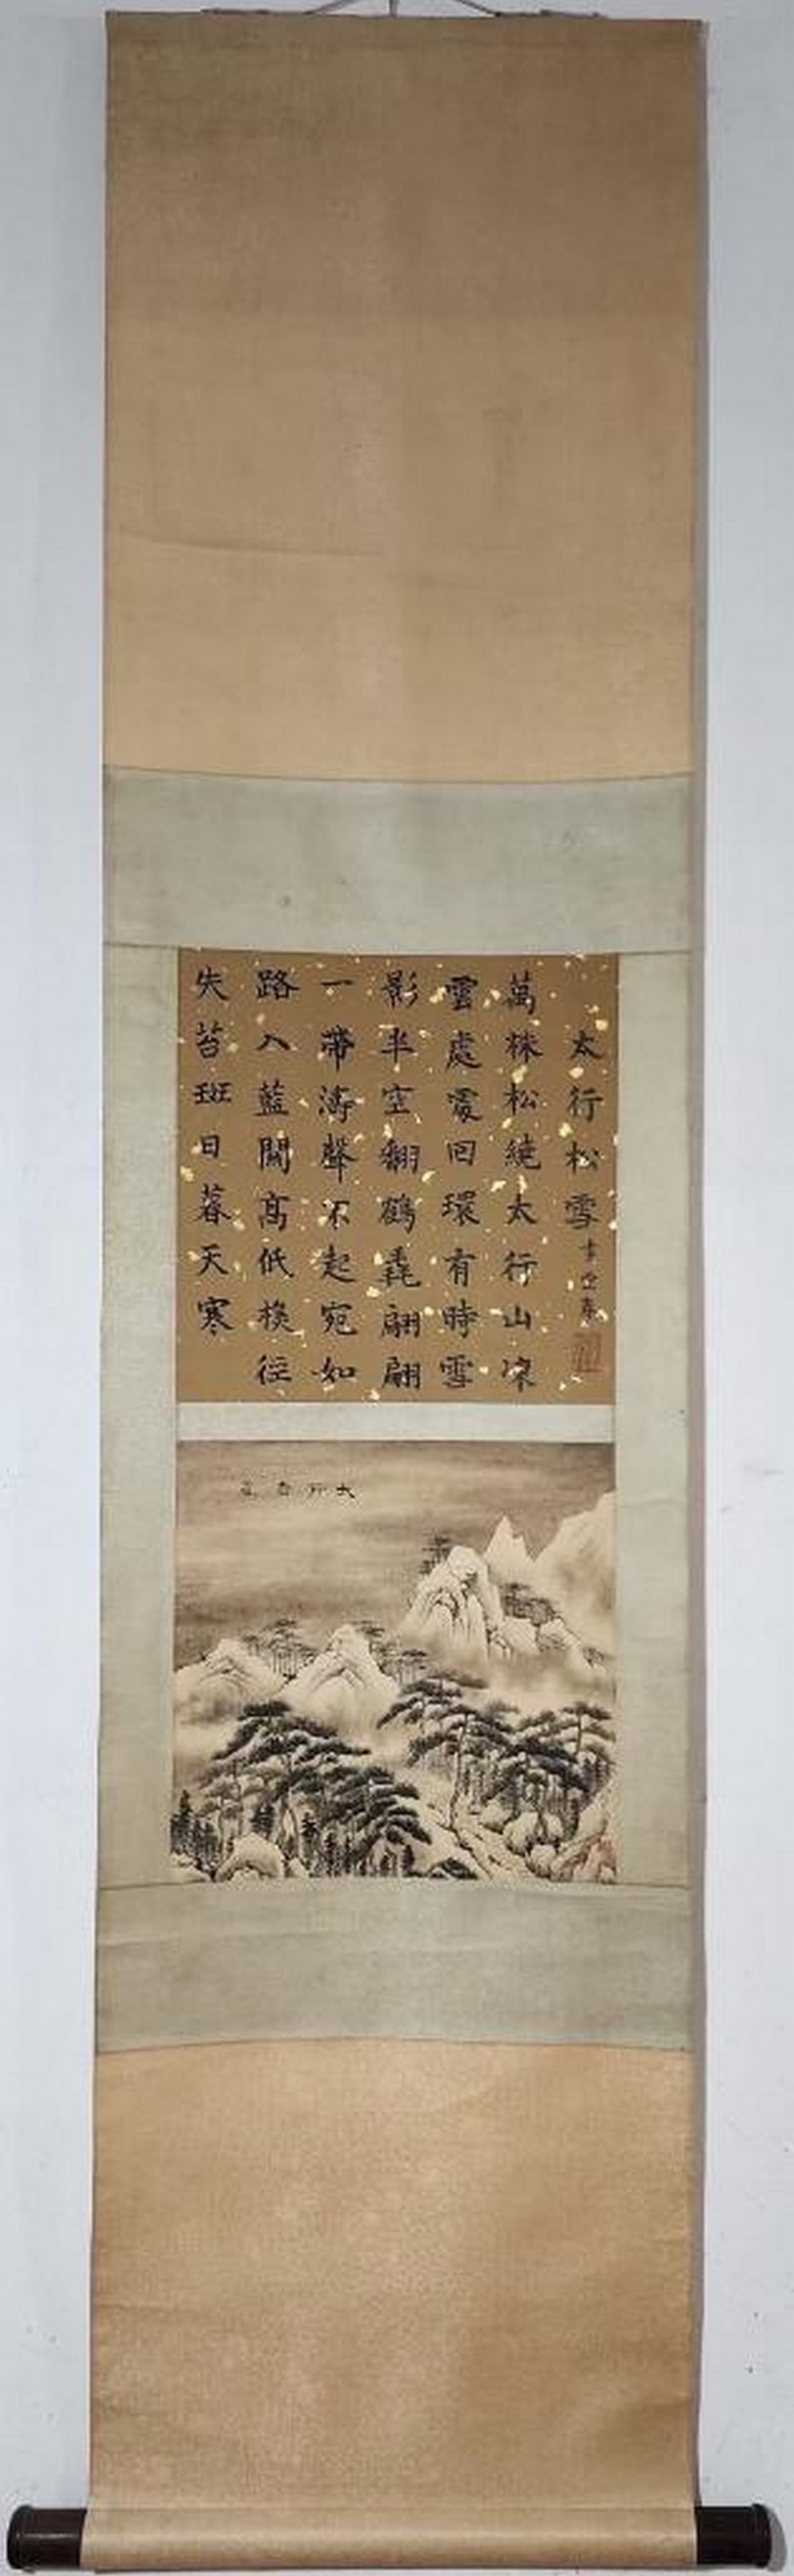 太行松雪
萬株松繞太行山凍
雲處處回環有時雪
影半空翻鶴毳翩翩
一帶濤聲不起宛如
路入藍關高低樵徑
失苔斑日暮天寒